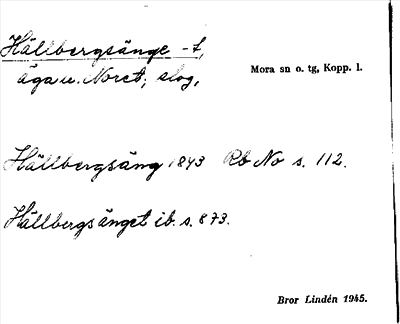 Hällbergsänge -t,
äga u. Noret; slog,
Mora sn o. tg, Kopp. l.
Hällbergsäng 1843 Rb No s. 112.
Hällbergsänget ib. s. 873.
Bror Lindén 1945.